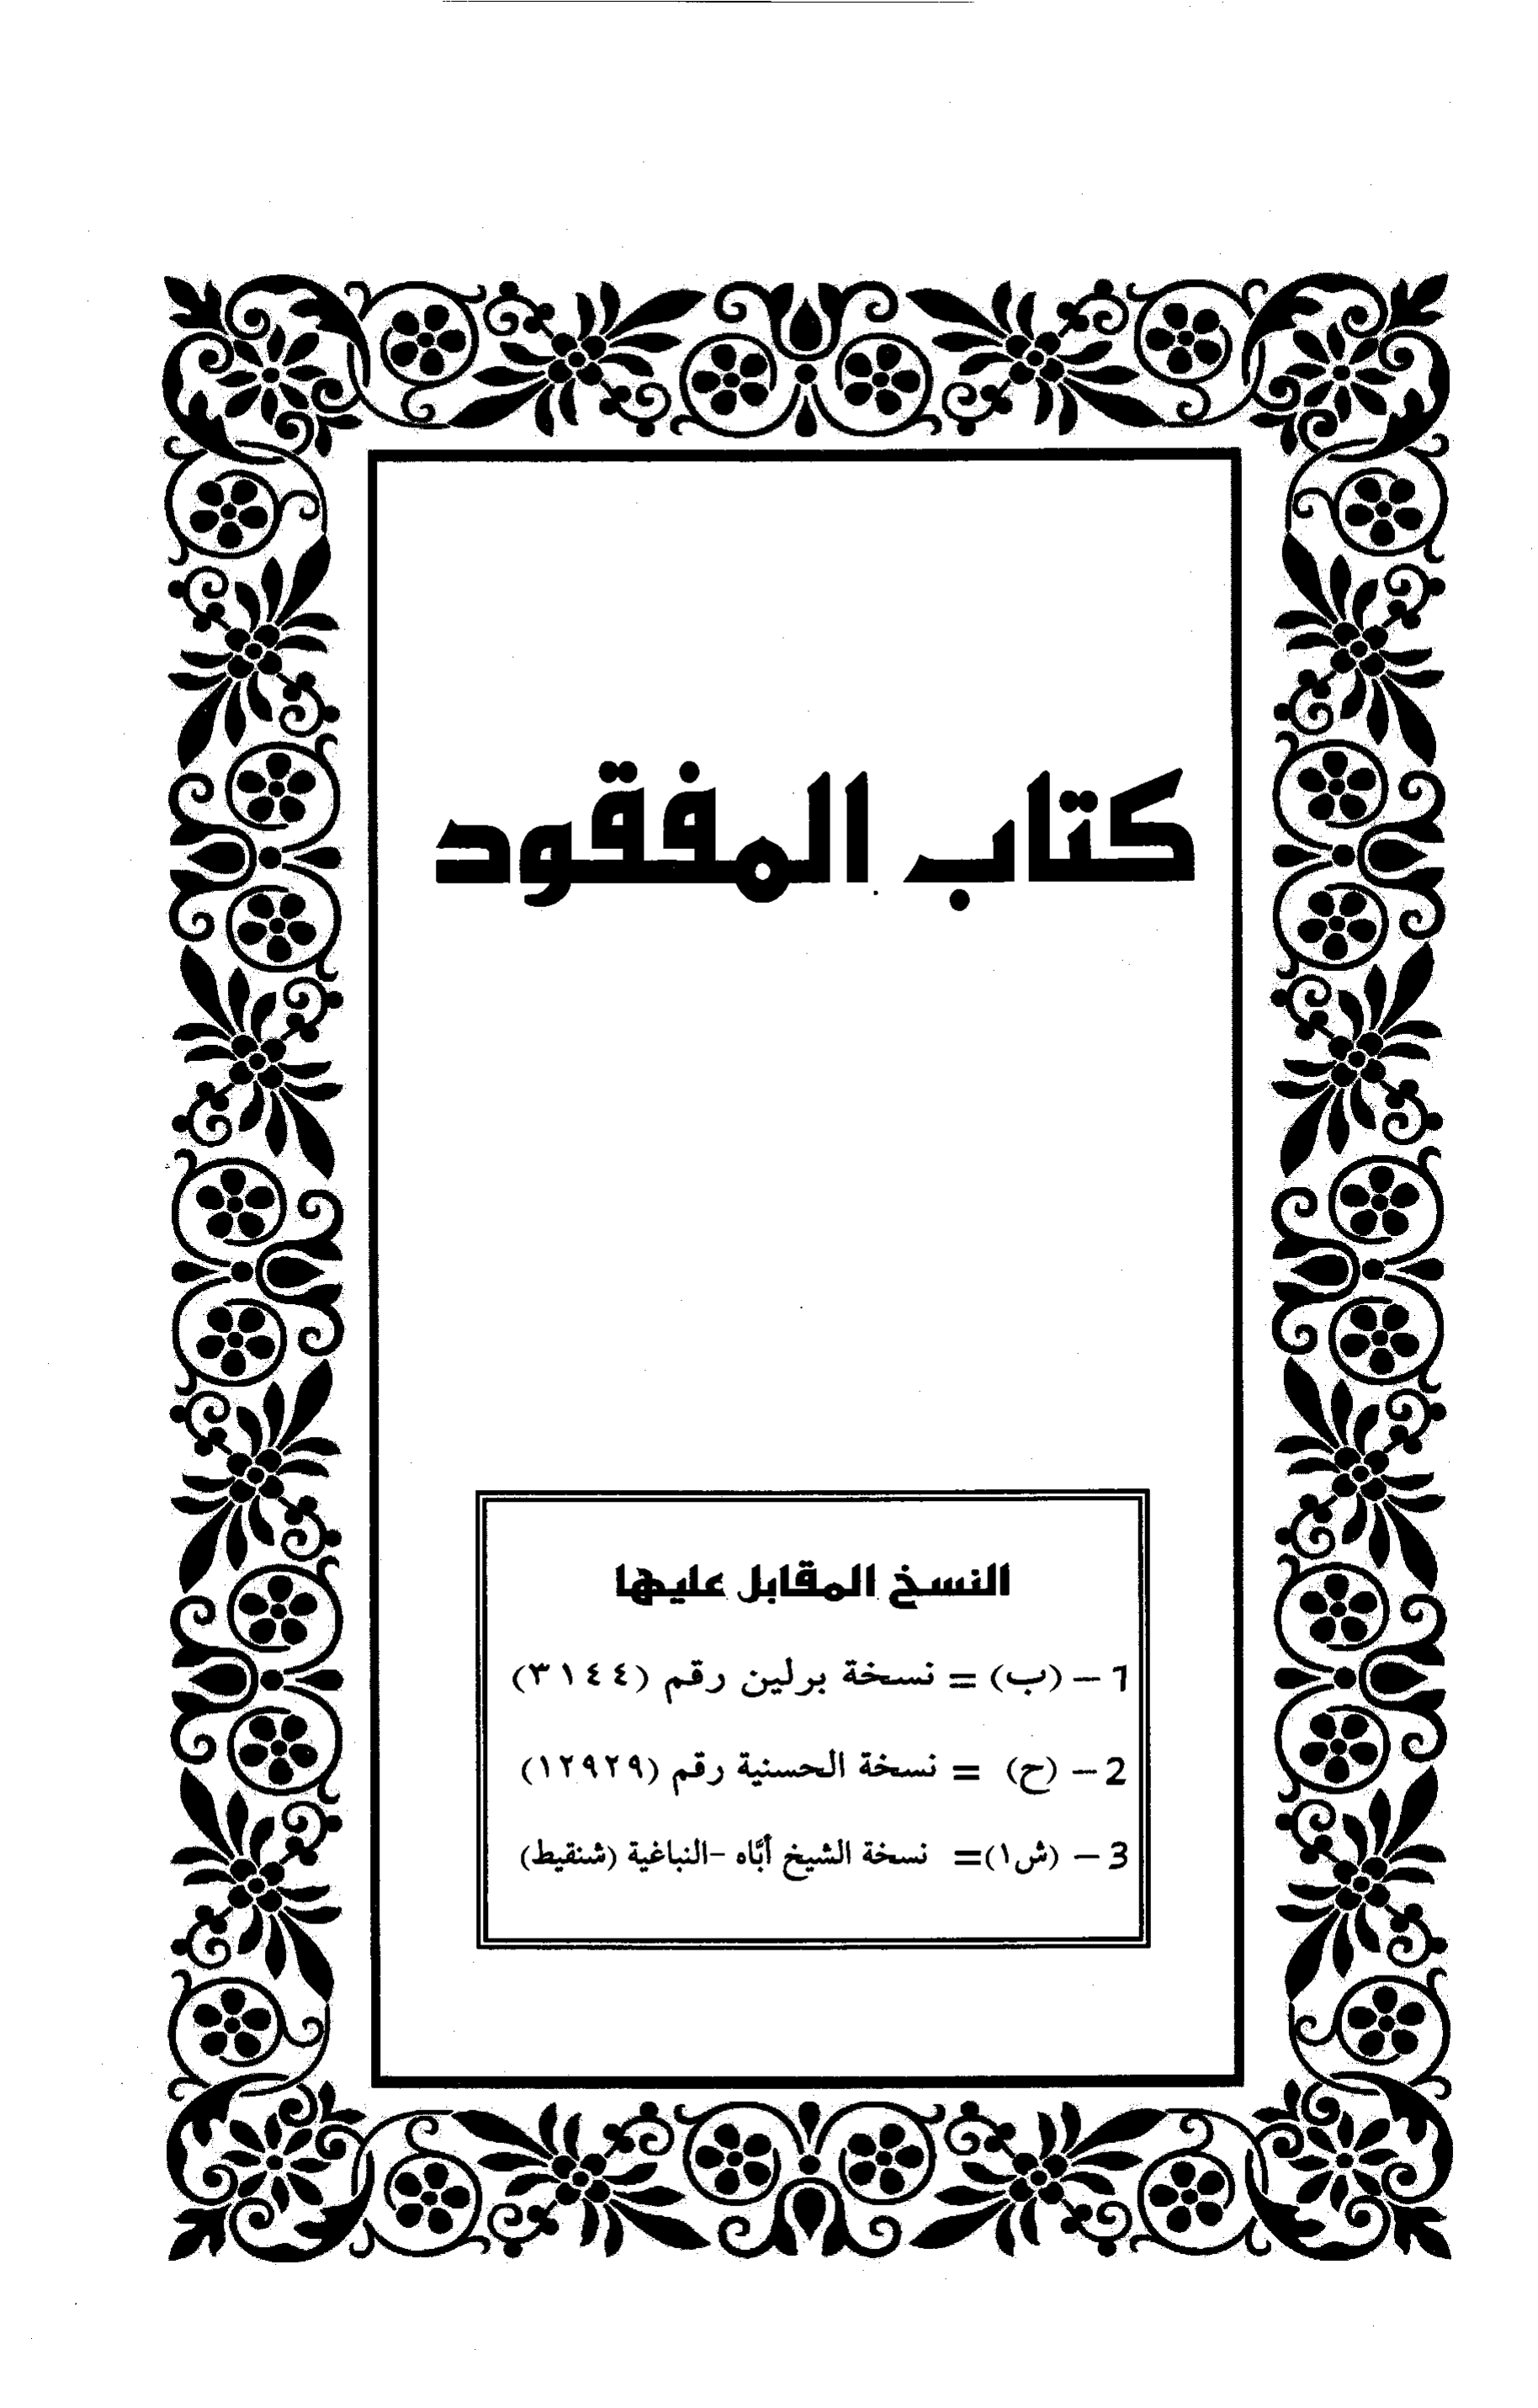 كتاب المفقود
النسخ المقابل عليها
1 - (ب) = نسخة برلين رقم (٣١٤٤)
2 - (ح) = نسخة الحسنية رقم (١٢٩٢٩)
3 - (ش١)= نسخة الشيخ أبَّاه -النباغية (شنقيط)